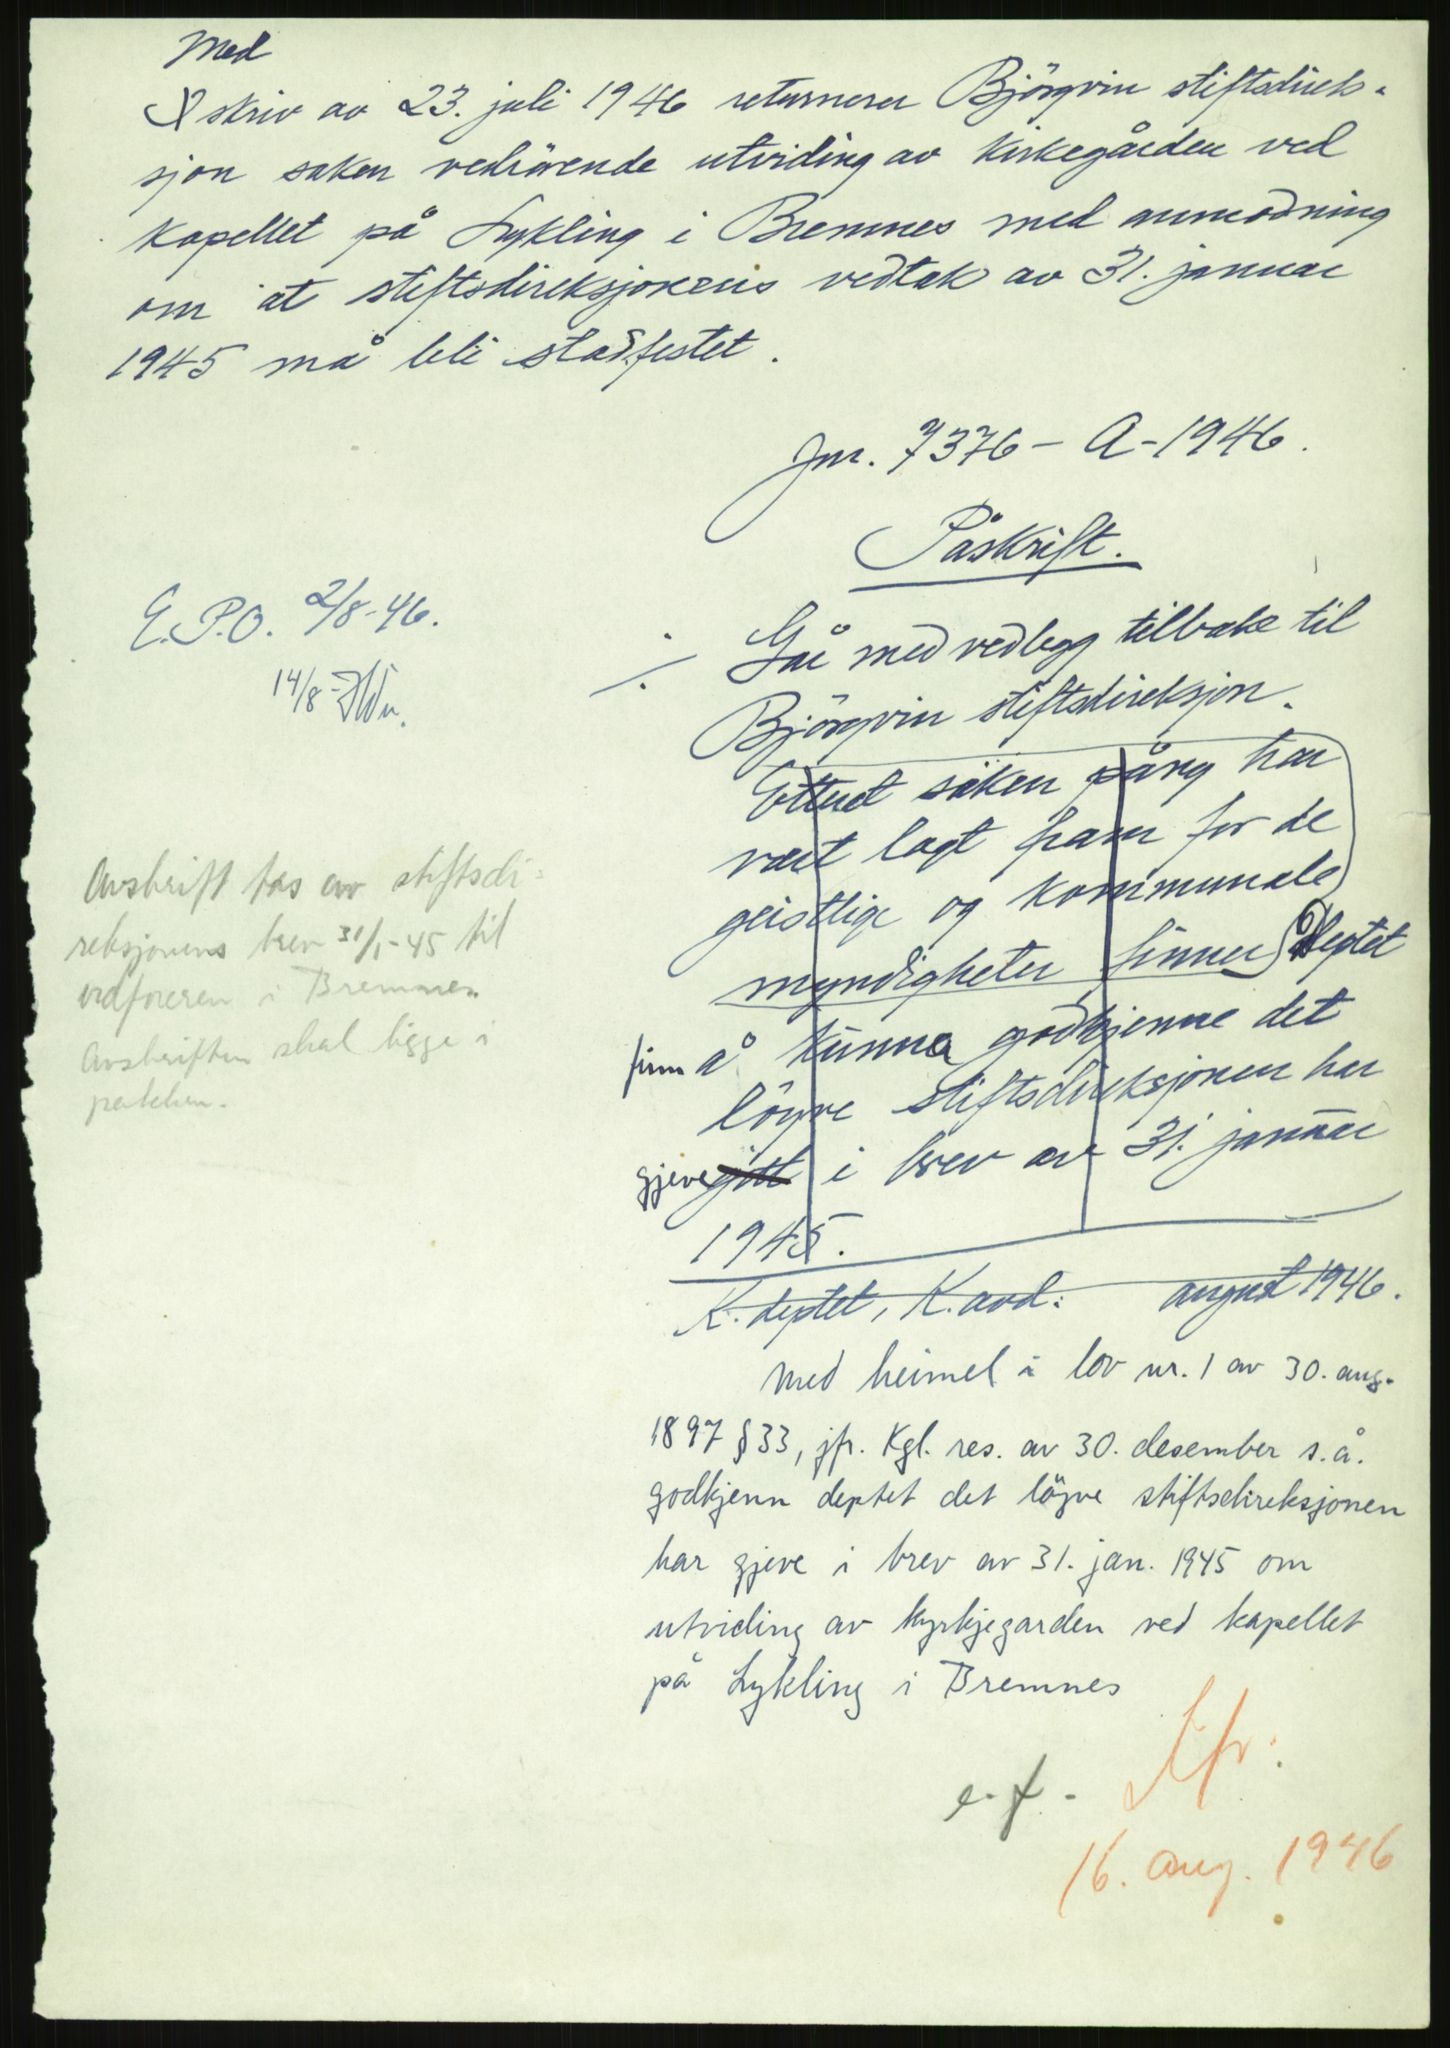 Med
skriv av 23. juli 1946 returnerer Björgvin stiftsdirek-
sjon saken vedrörende utviding av kirkegården ved
kapellet på Lykling i Bremnes med anmodning
om at stiftsdireksjonens vedtak av 31. januar
1945 må bli stadfestet.
Jnr. 7376 - A - 1946.
Påskrift.
E.P.O. 2/8-46.
14/8
./. Går med vedlegg tilbake til
Björgvin stiftsdireksjon.
Etter at saken på ny har
vært lagt fram for de
geistlige og kommunale
myndigheter finner Deptet
finn å kunna godkjenne det
löyve stiftsdireksjonen har
gjeve gitt i brev av 31. januar
1945.
K. deptet, K.avd. august 1946.
Avskrift tas av stiftsdi-
reksjonens brev 31/1-45 til
ordföreren i Bremnes
Avskriften skal ligge i
pakken.
Med heimel i lov nr. 1 av 30. aug.
1897 § 33, jfr. Kgl. res. av 30. desember s.å.
godkjenn deptet det löyve stiftsdireksjonen
har gjeve i brev av 31. jan. 1945 om
utviding av kyrkjegarden ved kapellet
på Lykling i Bremnes
e.f.
16. aug. 1946